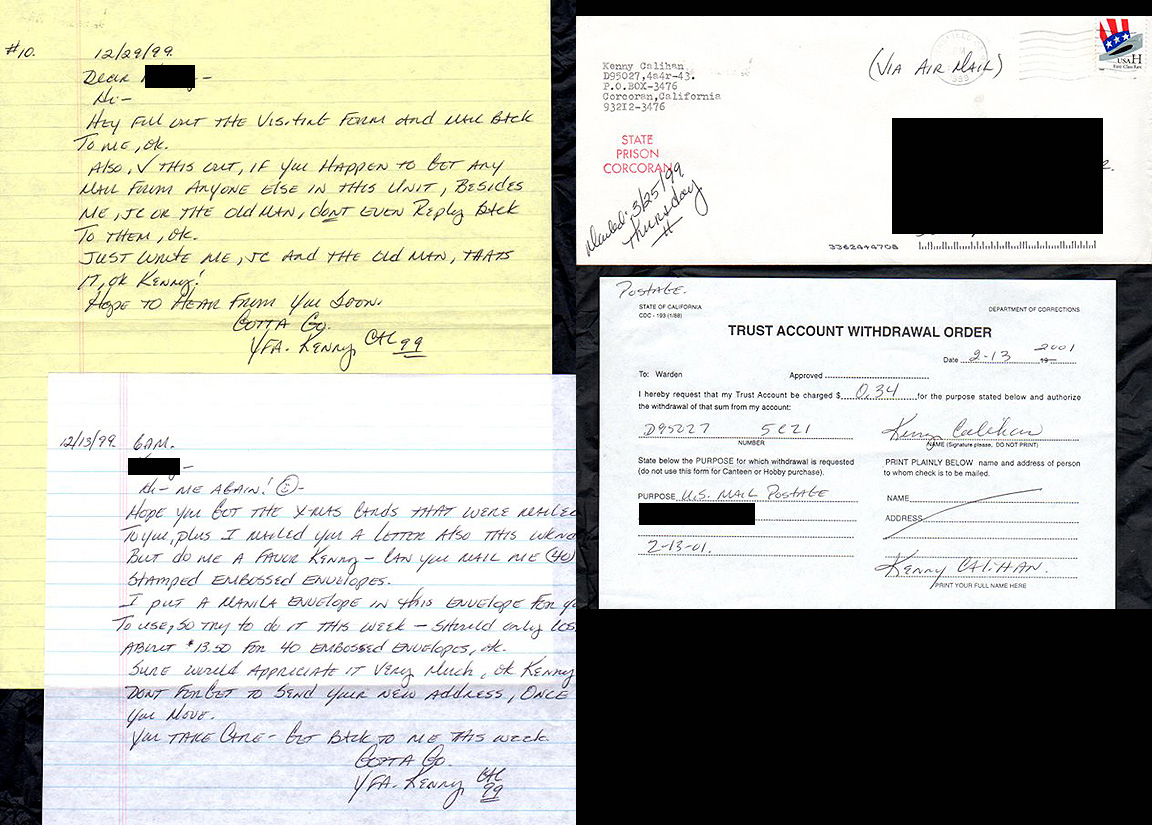 #10. 12/29/99.
Dear
Hi-
Hey Fill out the Visiting Form and mail Back
To me, ok.
Also, ✓ this out, if you Happen to Get any
mail From Anyone Else in this Unit, Besides
me, JC or the Old Man, dont even Reply Back
To them, ok.
Just write me, JC and the Old Man, thats
it, ok Kenny!
Hope to Hear From you Soon.
Gotta Go.
YFA. Kenny Cal 99
12/13/99. 6am.
Hi- me again! ☺-
Hope you Got the Xmas Cards that were mailed
To you, plus I mailed you a letter Also this
But do me a Favor Kenny- Can you mail me (40)
Stamped Embossed Envelopes.
I put a manila Envelope in this Envelope For
To use, so try to do it this week- Should only
About $13.50 For 40 Embossed Envelopes, ok.
Sure would Appreciate it Very Much, ok Kenny
Dont Forget to Send your new Address, Once
you move.
You take Care- Get Back to me this week.
Gotta Go.
YFA. Kenny Cal 99
Kenny Calihan
D95027,4a4r-43.
P.O.BOX-3476
Corcoran,California
93212-3476
(Via Air Mail)
USA H
First-Class Rate
STATE
PRISON
CORCORAN
mailed: 3/25/99
Thursday
3362444708
Postage.
STATE OF CALIFORNIA
CDC - 193 (1/88)
DEPARTMENT OF CORRECTIONS
TRUST ACCOUNT WITHDRAWAL ORDER
Date 2-13 2001 19
To: Warden Approved
I hereby request that my Trust Account be charged $ 0.34 for the purpose stated below and authorize
the withdrawal of that sum from my account:
D95027 5C21 Kenny Calihan
NUMBER NAME (Signature please, DO NOT PRINT)
State below the PURPOSE for which withdrawal is requested
(do not use this form for Canteen or Hobby purchase).
PRINT PLAINLY BELOW name and address of person
to whom check is to be mailed.
PURPOSE U.S. Mail Postage
NAME
ADDRESS
2-13-01.
Kenny Calihan.
PRINT YOUR FULL NAME HERE